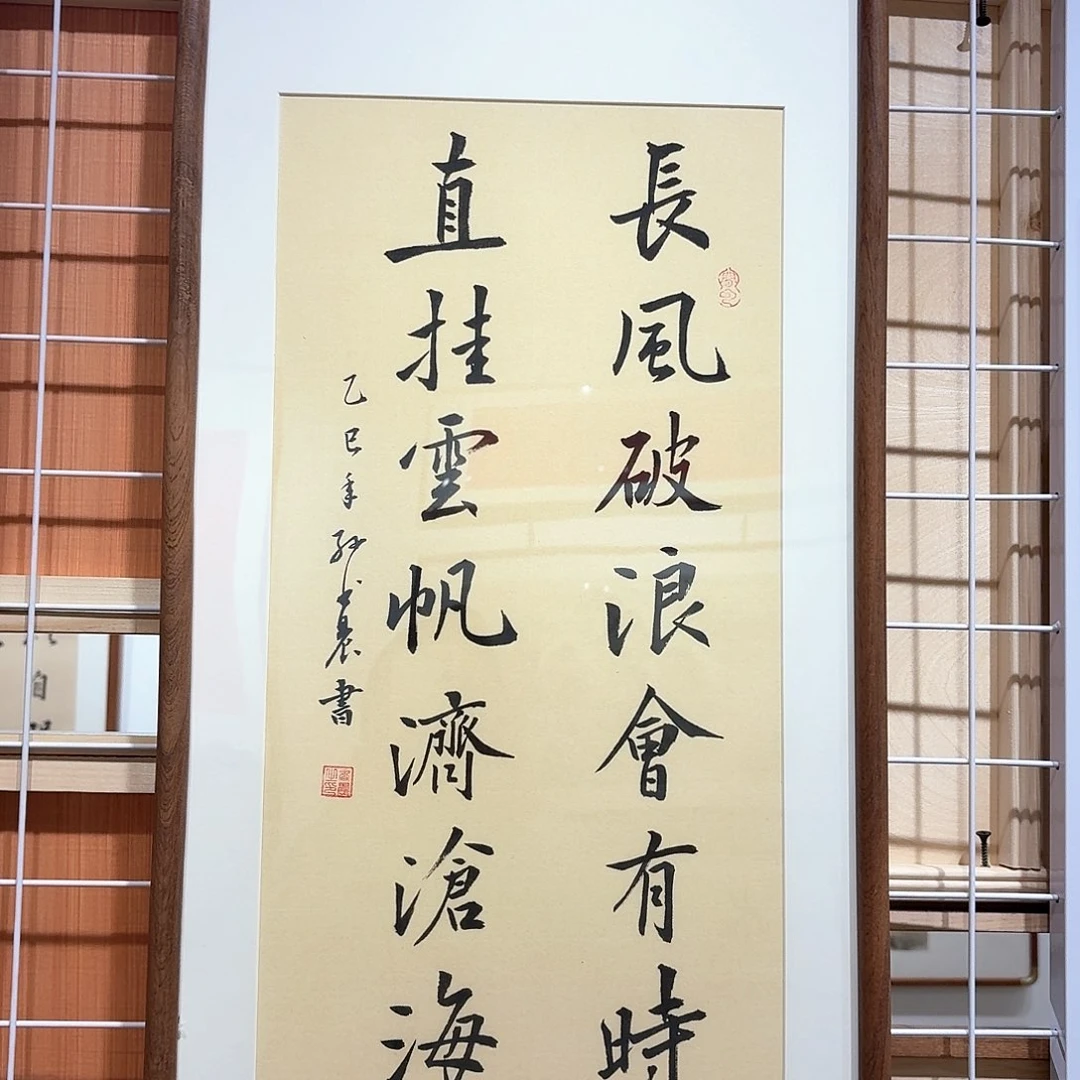 長風破浪會有時
直挂雲帆濟滄海
乙巳年孙书晨書